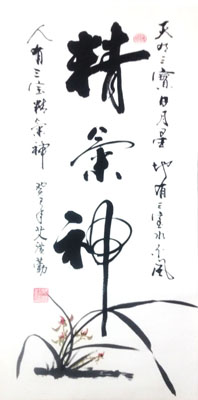 天有三寶日月星 地有三宝水火風
精氣神
人有三宝精氣神 癸巳年